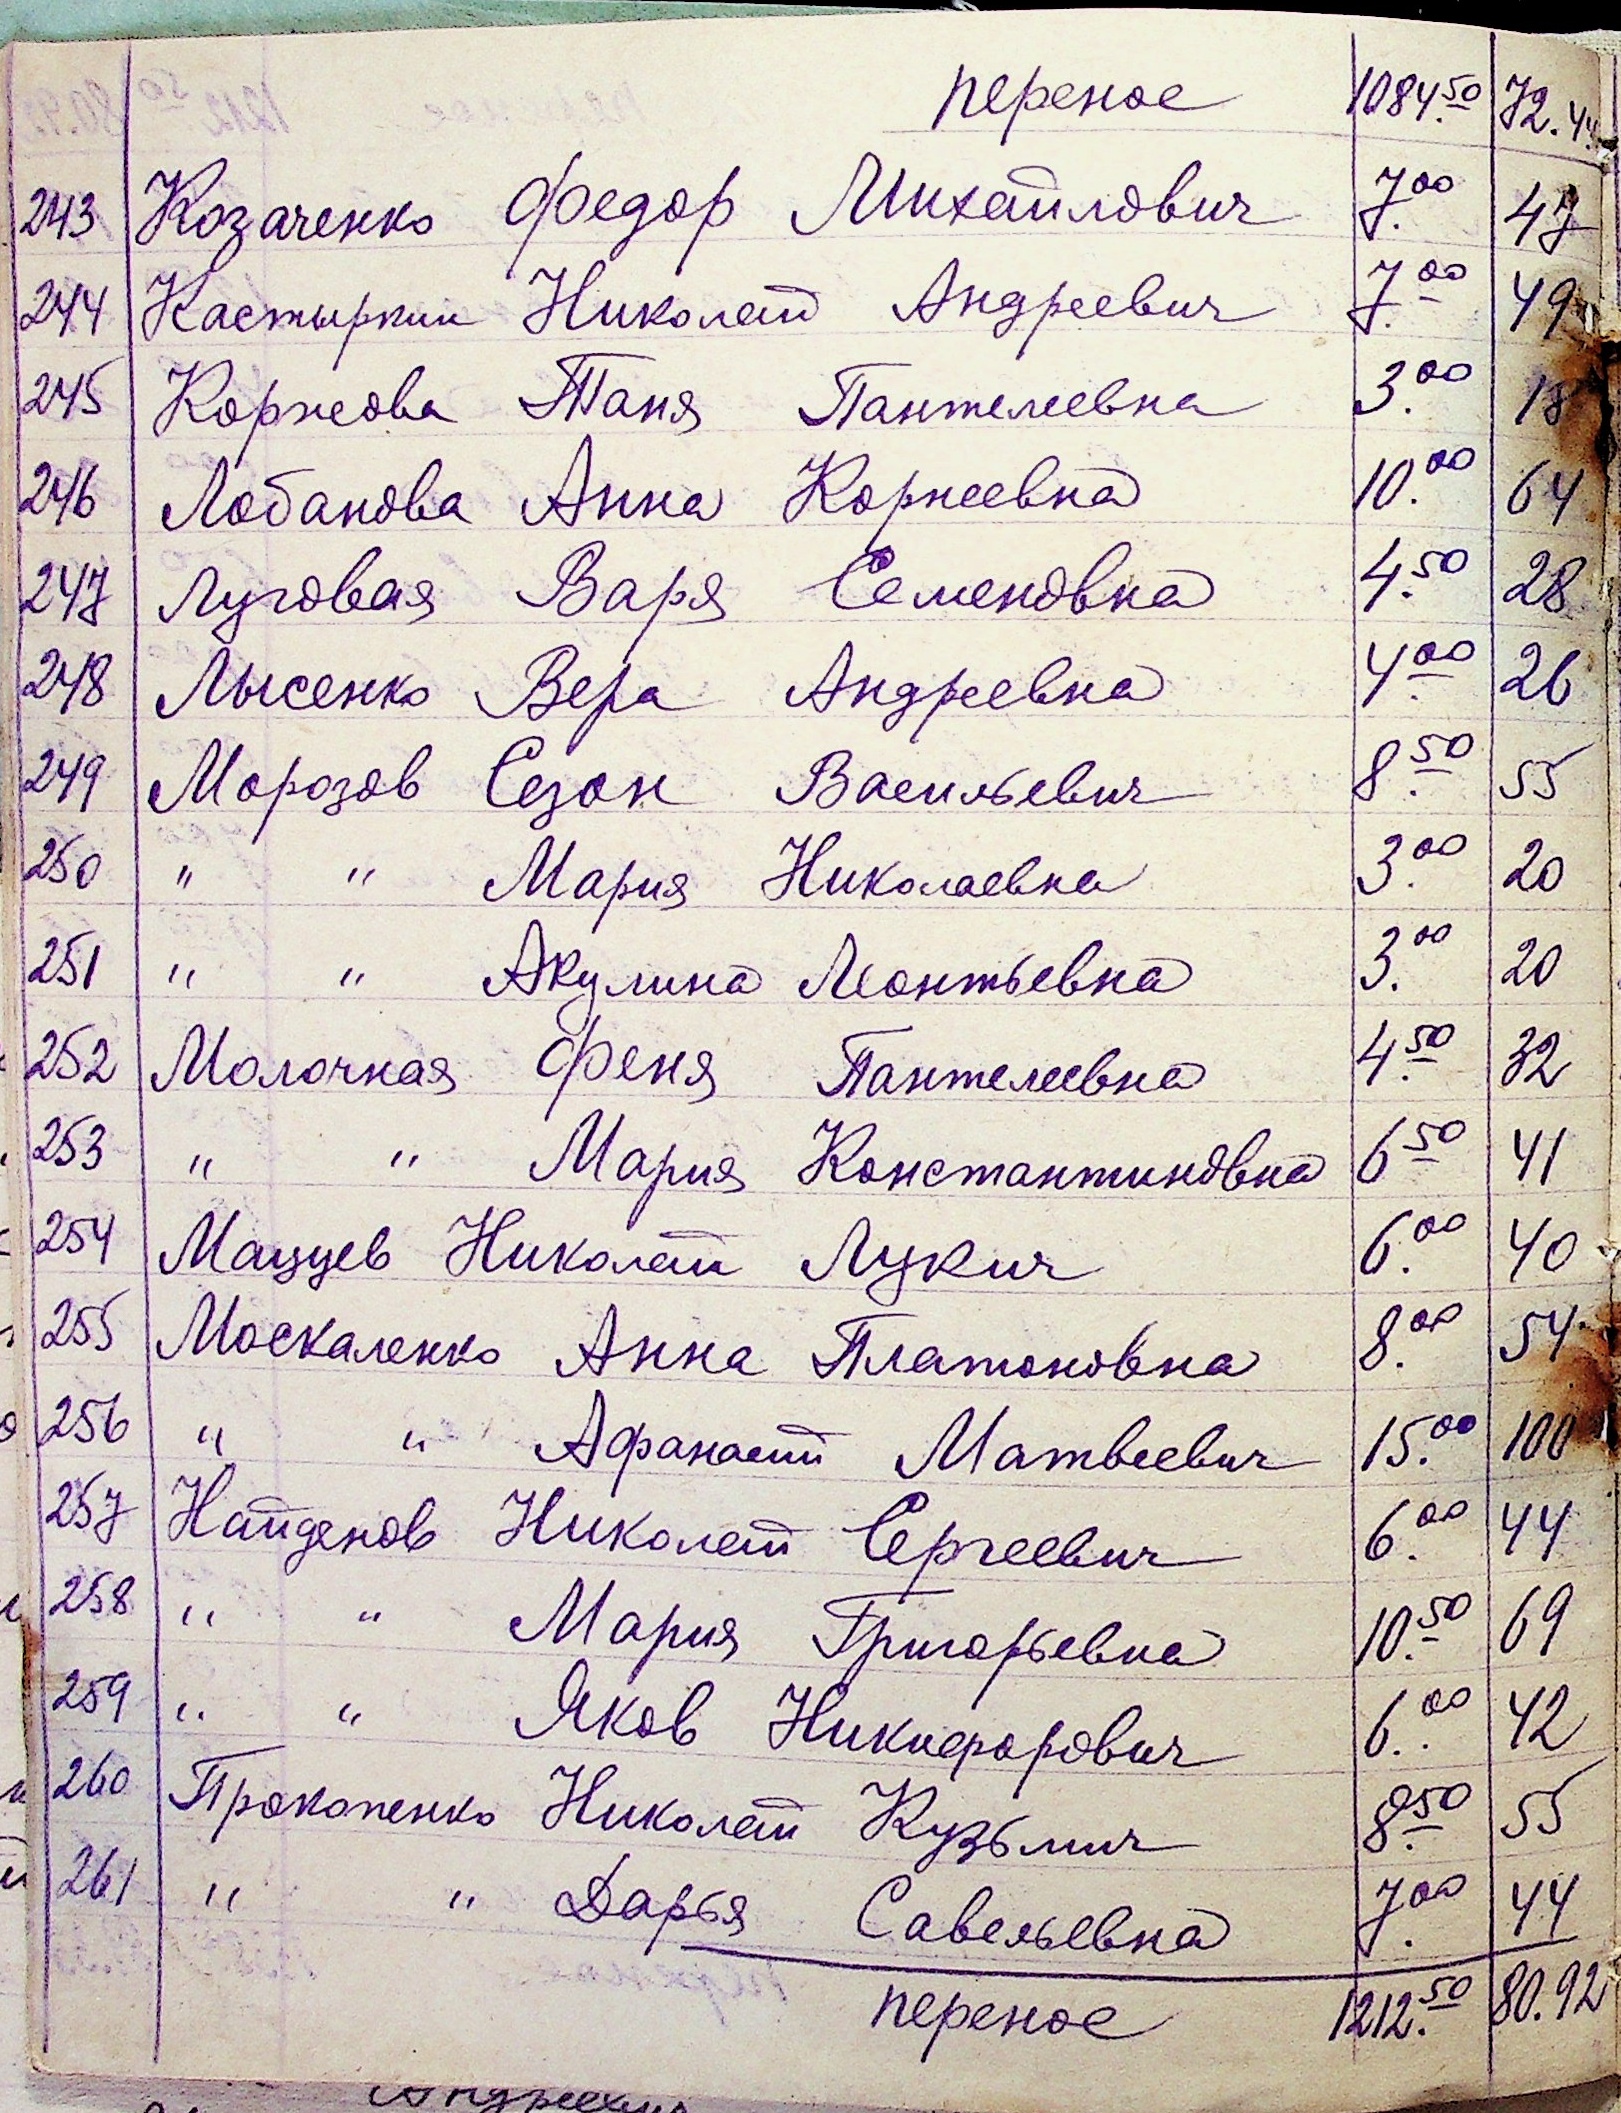 перенос 1084.50 72.44
243 Козаченко Федор Михайлович 7.00 47
244 Кастыркин Николай Андреевич 7.00 49
245 Корнеова Таня Пантелеевна 3.00 18
246 Лобанова Анна Корнеевна 10.00 64
247 Луговая Варя Семеновна 4.50 28
248 Лысенко Вера Андреевна 4.00 26
249 Морозов Сезон Васильевич 8.50 55
250 " " Мария Николаевна 3.00 20
251 " " Акулина Леонтьевна 3.00 20
252 Молочная Феня Пантелеевна 4.50 32
253 " " Мария Константиновна 6.50 41
254 Мацуев Николай Лукич 6.00 40
255 Москаленко Анна Платоновна 8.00 54
256 " " Афанасий Матвеевич 15.00 100
257 Найденов Николай Сергеевич 6.00 44
258 " " Мария Григорьевна 10.50 69
259 " " Яков Никифорович 6.00 42
260 Прокопенко Николай Кузьмич 8.50 55
261 " " Дарья Савельевна 7.00 44
перенос 1212.50 80.92